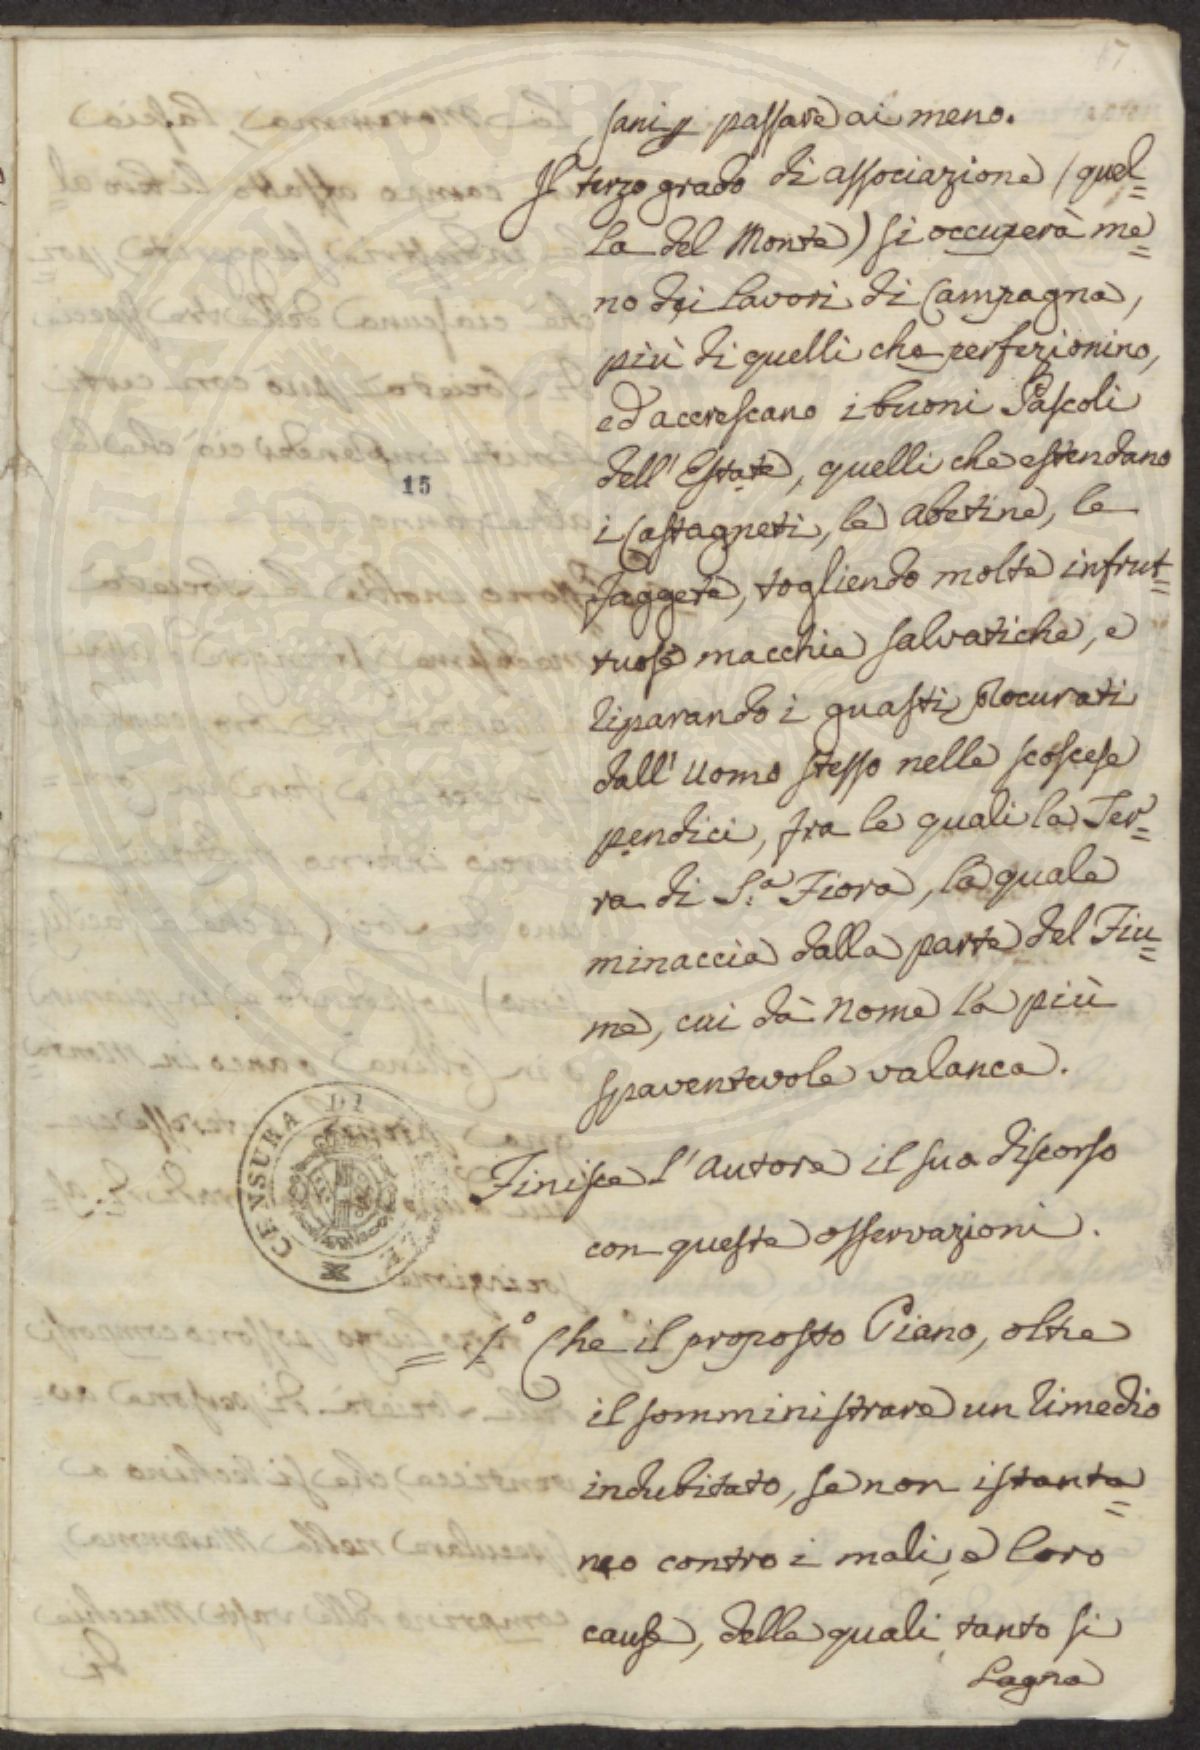 sani p passare ai meno.
Il terzo grado di associazione (quel=
la del Monte) si occuperà me=
no dei lavori di Campagna,
più di quelli che perfezionino,
ed accrescano i buoni Pascoli
dell' Estate, quelli che estendano
i Castagneti, le Abetine, le
Faggete, togliendo molte infrut=
tuose macchie salvatiche, e
riparando i guasti procurati
dall' Uomo stesso nelle scoscese
pendici, fra le quali la Ter=
ra di S.a Fiora, la quale
minaccia dalla parte del Fiu=
me, cui dà nome la più
spaventevole valanca.
Finisce l' Autore il suo discorso
con queste osservazioni.
= 1.° Che il proposto Piano, oltre
il somministrare un rimedio
indubitato, se non istanta=
neo contro i mali, e loro
cause, delle quali tanto si
Lagna
15
CENSURA DI